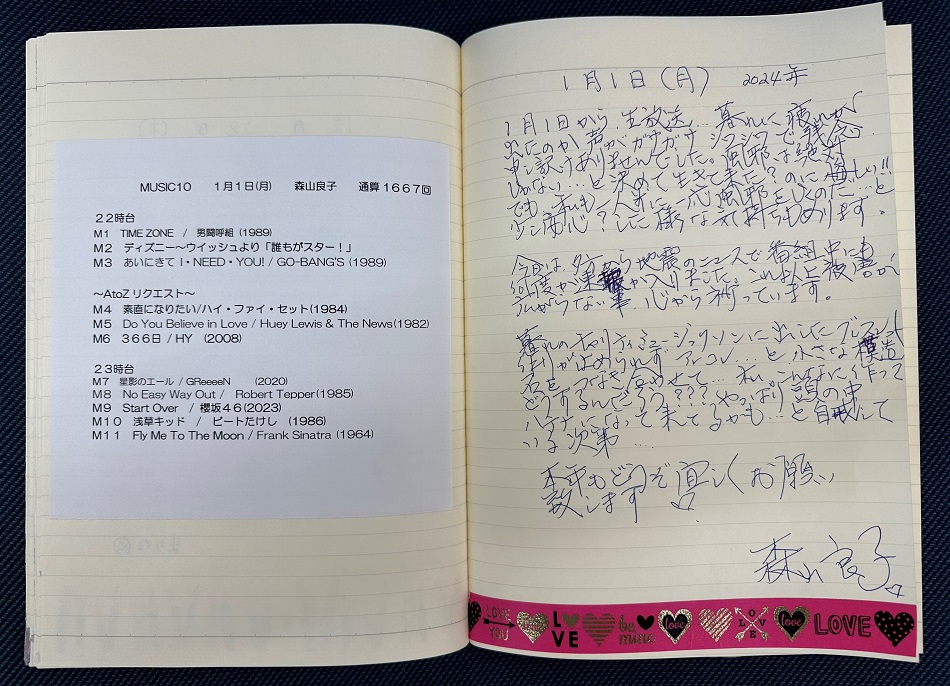 MUSIC10 1月1日(月) 森山良子 通算1667回
22時台
M1 TIME ZONE / 男闘呼組 (1989)
M2 ディズニー～ウイッシュより「誰もがスター！」
M3 あいにきて I・NEED・YOU! / GO-BANG'S (1989)
～AtoZ リクエスト～
M4 素直になりたい/ハイ・ファイ・セット(1984)
M5 Do You Believe in Love / Huey Lewis & The News(1982)
M6 366日 / HY (2008)
23時台
M7 星影のエール / GReeeeN (2020)
M8 No Easy Way Out / Robert Tepper(1985)
M9 Start Over / 櫻坂46(2023)
M10 浅草キッド / ビートたけし (1986)
M11 Fly Me To The Moon / Frank Sinatra (1964)
1月1日(月) 2024年
1月1日から生放送… 暮れに疲れが
出たのか声がガサガサ シワシワで残念
申し訳ありませんでした。風邪は絶対
しない…と決めて生きて来た?のに悔しい!!
でも、私も一人前に一応風邪をひくのだ…と
少し安心?した様な気持ちもあります。
今日は夕方から地震のニュースで番組中にも
何度か が入りました。これ以上被害が
広がらない事、心から祈っています。
暮れの
が止められず アレコレ…と小さな模造
石をつなぎ合わせて…私、こんなに作って
どうするんだろう???やっぱり頭の中
ハテナになって来てるかも…と自戒して
いる次第…
本年もどうぞ宜しくお願い
致します
森山良子
LOVE YOU
LOVE
be mine
love
LOVE
love
LOVE